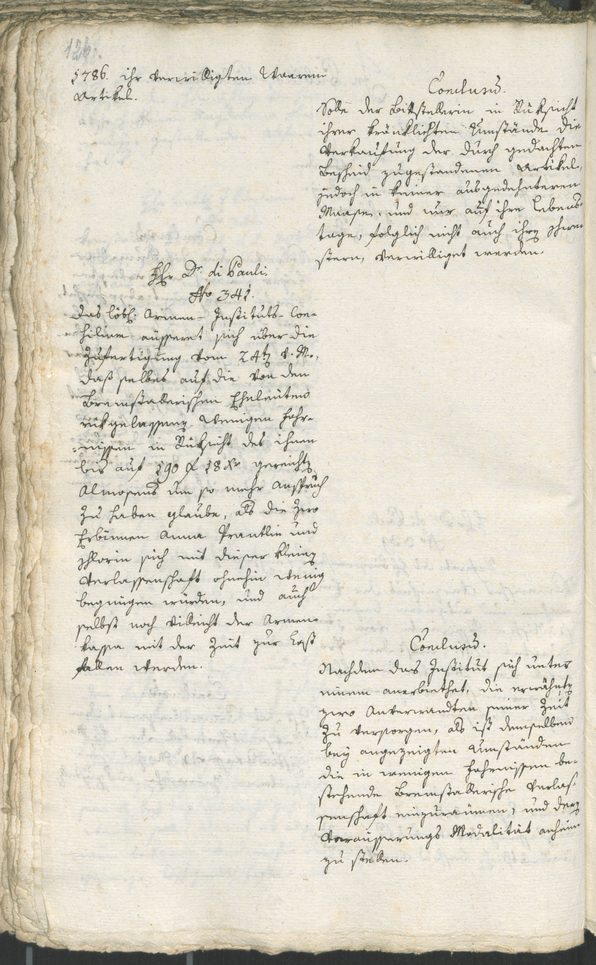 126.
1786. ihr verwilligten Waaren
Artikel.
Conclusum.
Solle der Bittstellerin in Rüksicht
ihrer kränklichten Umstände die
Verkaufung der durch gedachten
Bescheid zugestandenen Artikel,
jedoch in keiner ausgedehnteren
Maase, und nur auf ihre Lebens-
tage, folglich nicht auch ihren Schwe-
stern, verwilliget werden.
Hr. Dr. di Pauli
No 341.
Das löbl. Armen-Instituts-Con-
silium äussert sich über die
Zufertigung vom 24ten d. M.,
daß selbes auf die von den
Bremstallerischen Eheleuten
rükgelassenen wenigen Fahr-
nissen in Rüksicht des ihnen
bis auf 190 f 18 xr gereichten
Almosens um so mehr Anspruch
zu haben glaube, als die zwo
Erbinnen Anna Prantlin und
sich mit dieser kleinen
Verlassenschaft ohnehin wenig
begnügen würden, und auch
selbst noch villeicht der Armen-
kassa mit der Zeit zur Last
fallen werden.
Conclusum.
Nachdem das Institut sich unter
einem anerbiethet, die erwähnten
zwo Anverwandten seiner Zeit
zu versorgen, als ist demselben
bey angezeigten Umständen
die in wenigen Fahrnissen be-
stehende Bremstallerische Verlas-
senschaft einzuraumen, und den
Veräusserungs Modalität anheim
zu stellen.